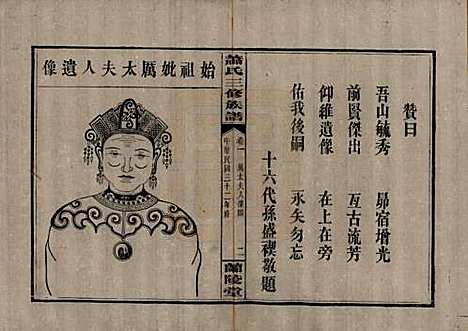 贊曰
吾山毓秀　昴宿增光
前賢傑出　亙古流芳
仰維遺像　在上在旁
佑我後嗣　永矢勿忘
十六代孫盛禊敬題
蕭氏三修族譜
卷一　太夫人像
中華民國三十二年修
蘭陵堂
始祖妣厲太夫人遺像